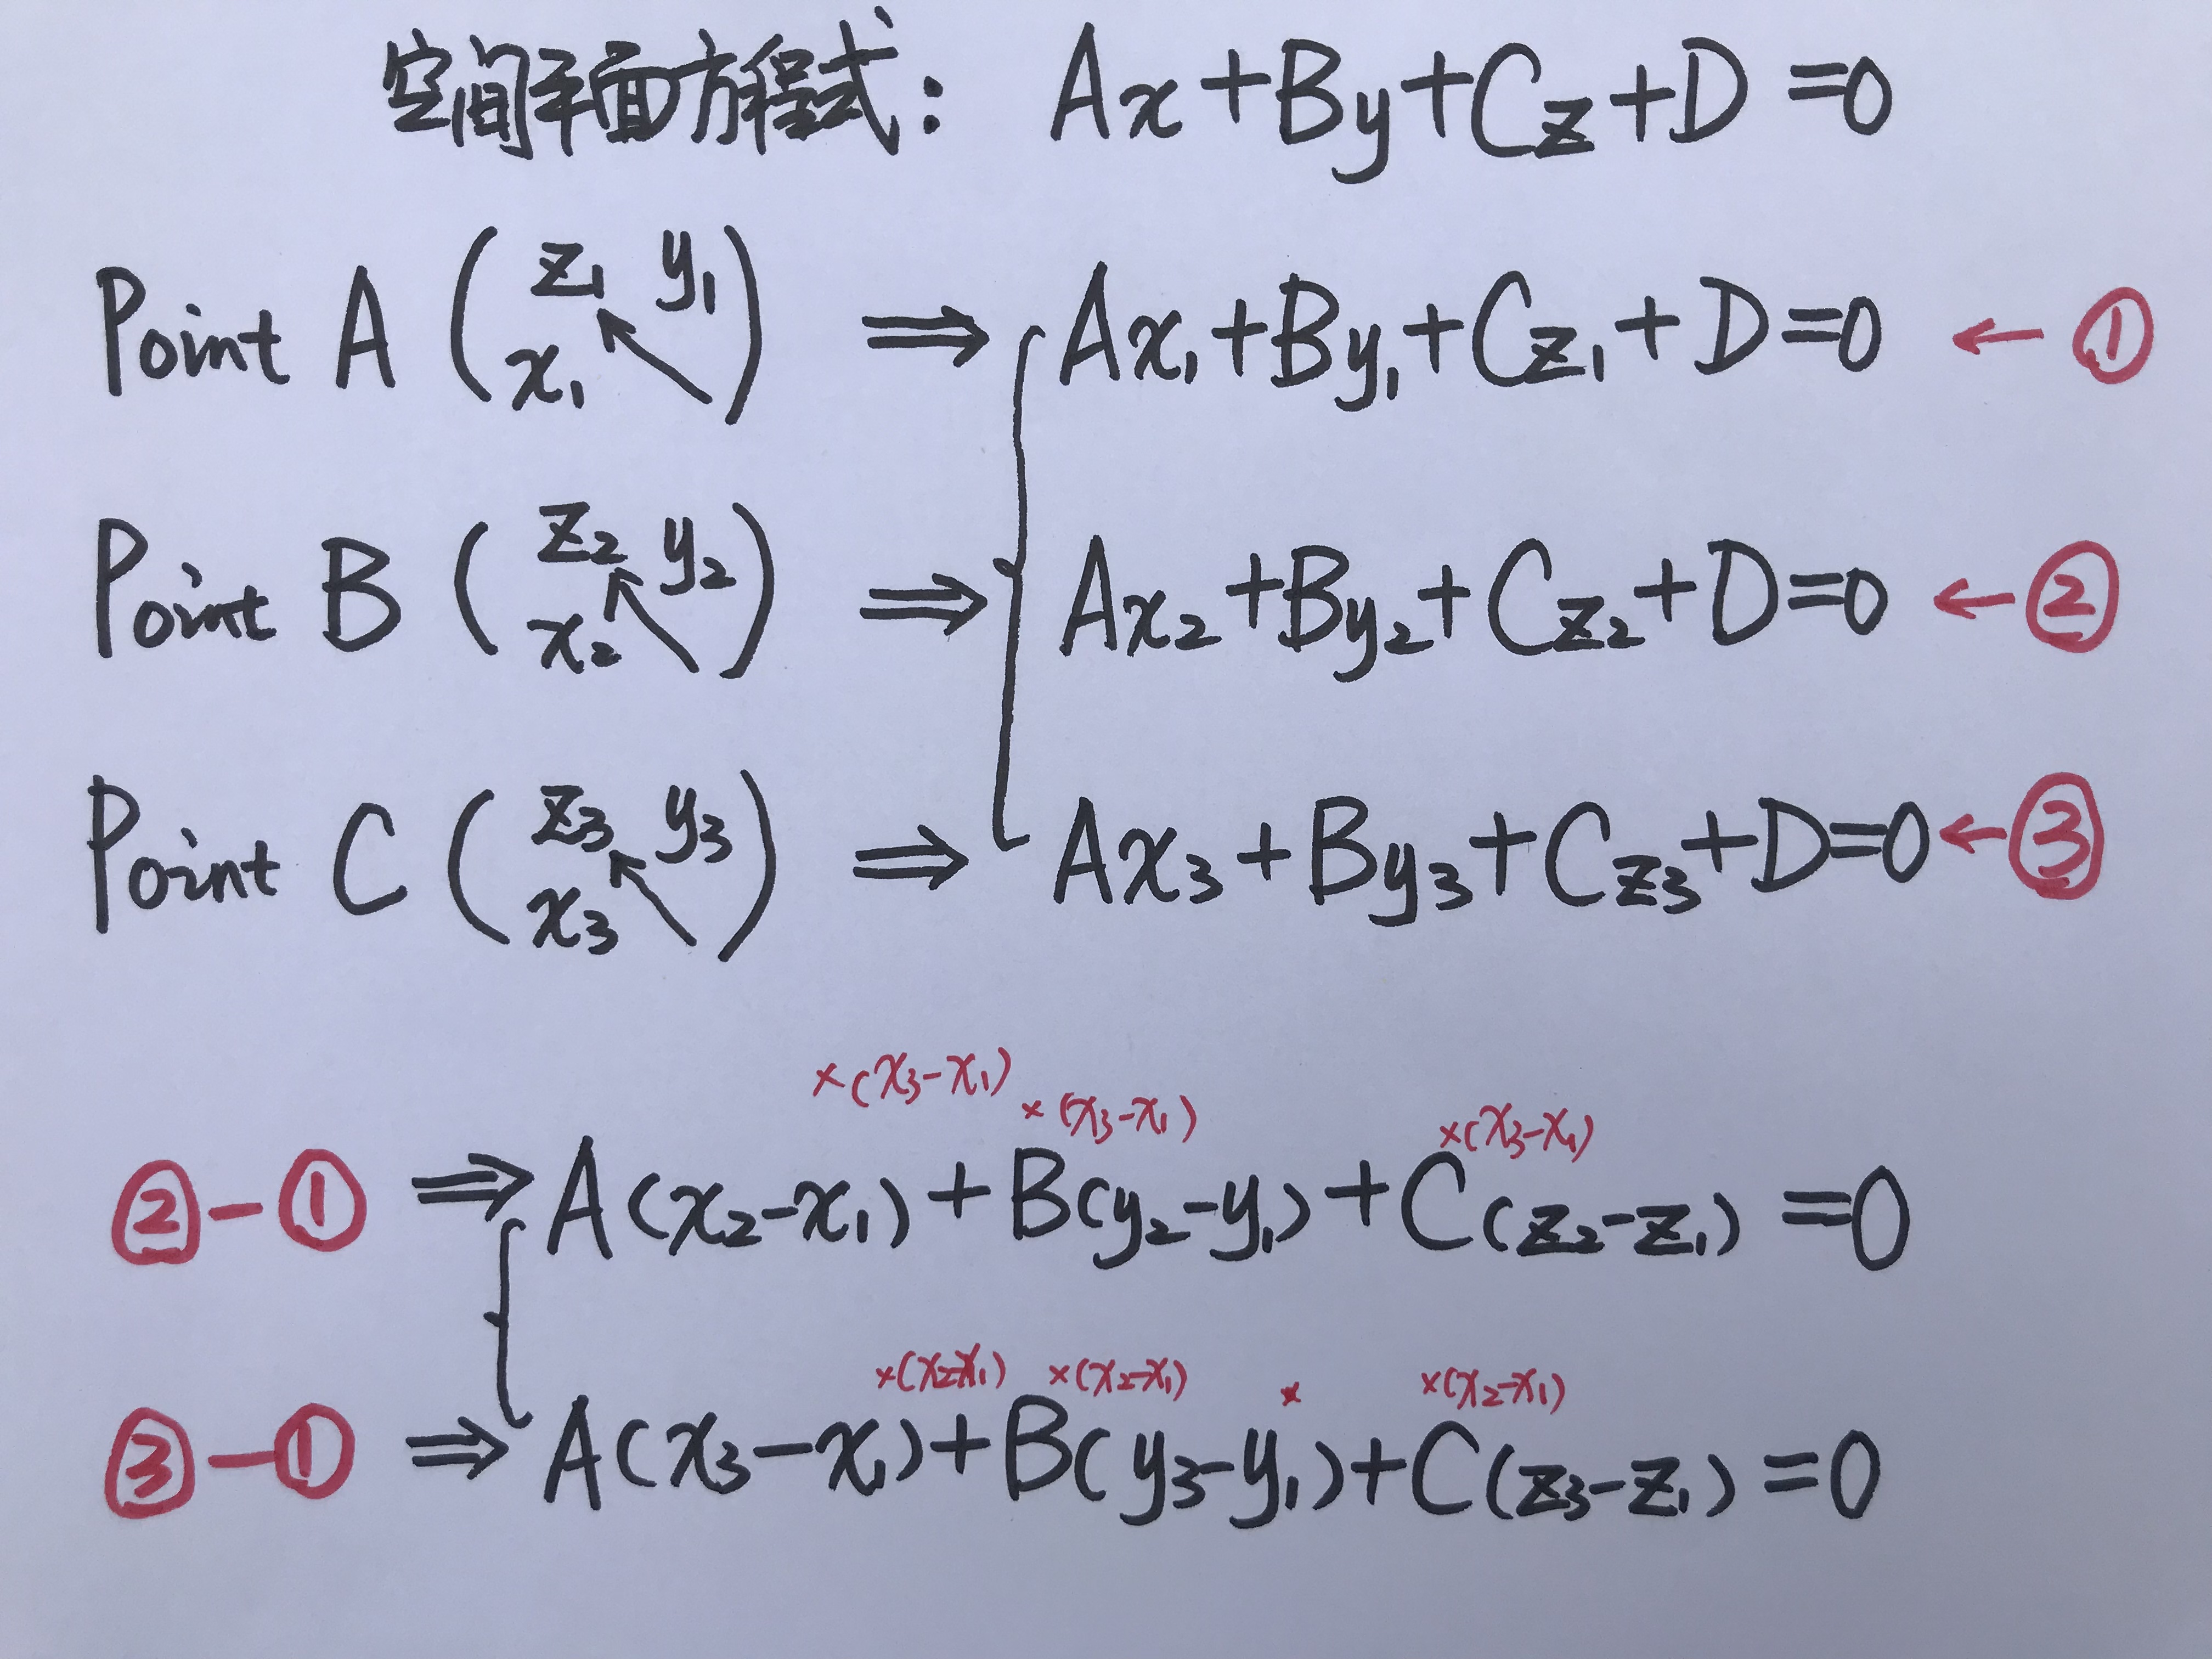 空间平面方程式: Ax+By+Cz+D=0
Point A ( z₁ y₁ x₁ ↖ ) ⇒ Ax₁+By₁+Cz₁+D=0 ← ①
Point B ( z₂ y₂ x₂ ↖ ) ⇒ Ax₂+By₂+Cz₂+D=0 ← ②
Point C ( z₃ y₃ x₃ ↖ ) ⇒ Ax₃+By₃+Cz₃+D=0 ← ③
×(x₃-x₁) ×(x₃-x₁) ×(x₃-x₁)
②-① ⇒ A(x₂-x₁)+B(y₂-y₁)+C(z₂-z₁)=0
×(x₂-x₁) ×(x₂-x₁) × ×(x₂-x₁)
③-① ⇒ A(x₃-x₁)+B(y₃-y₁)+C(z₃-z₁)=0